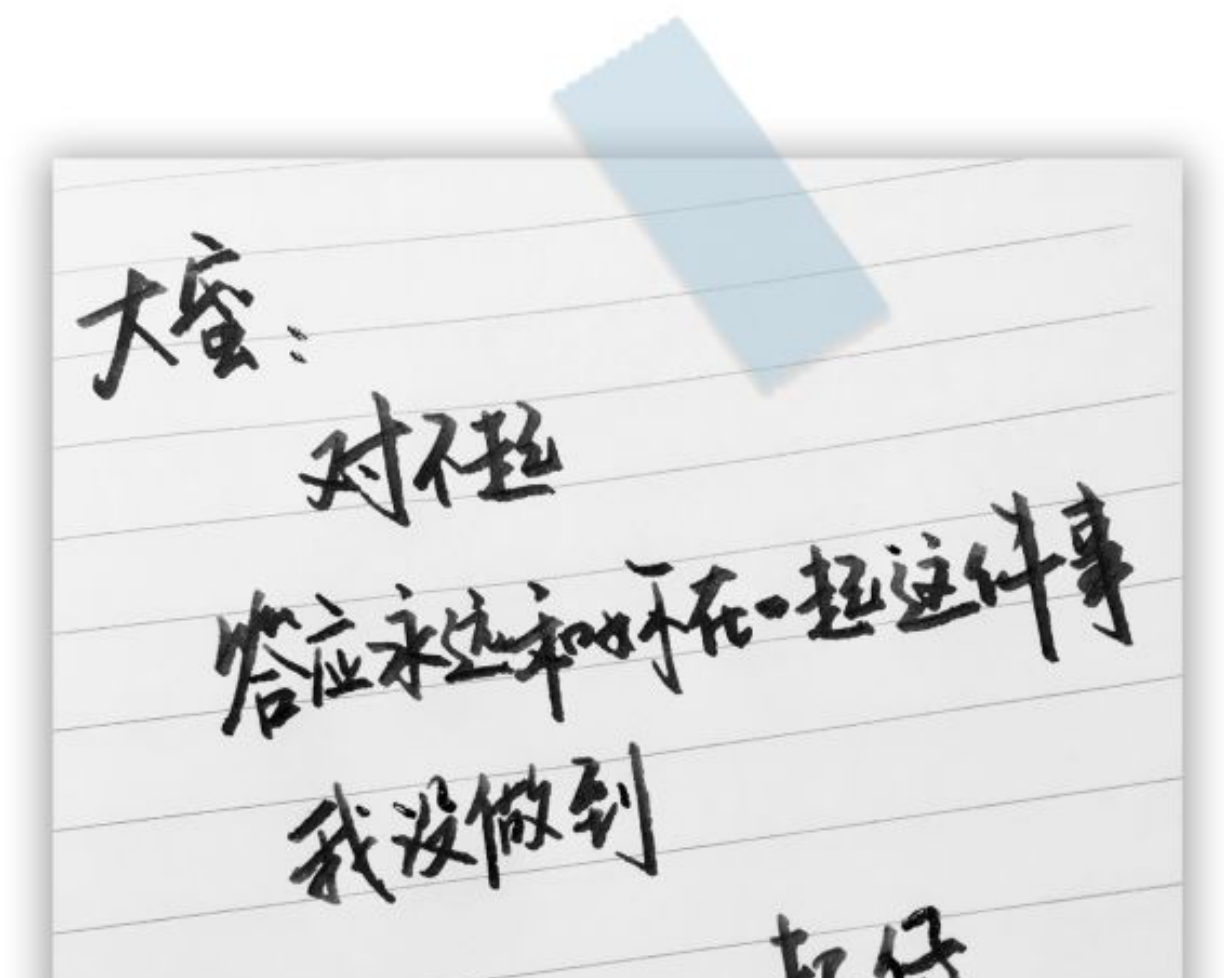 大蜜：
对不起
答应永远和妳在一起这件事
我没做到
仔